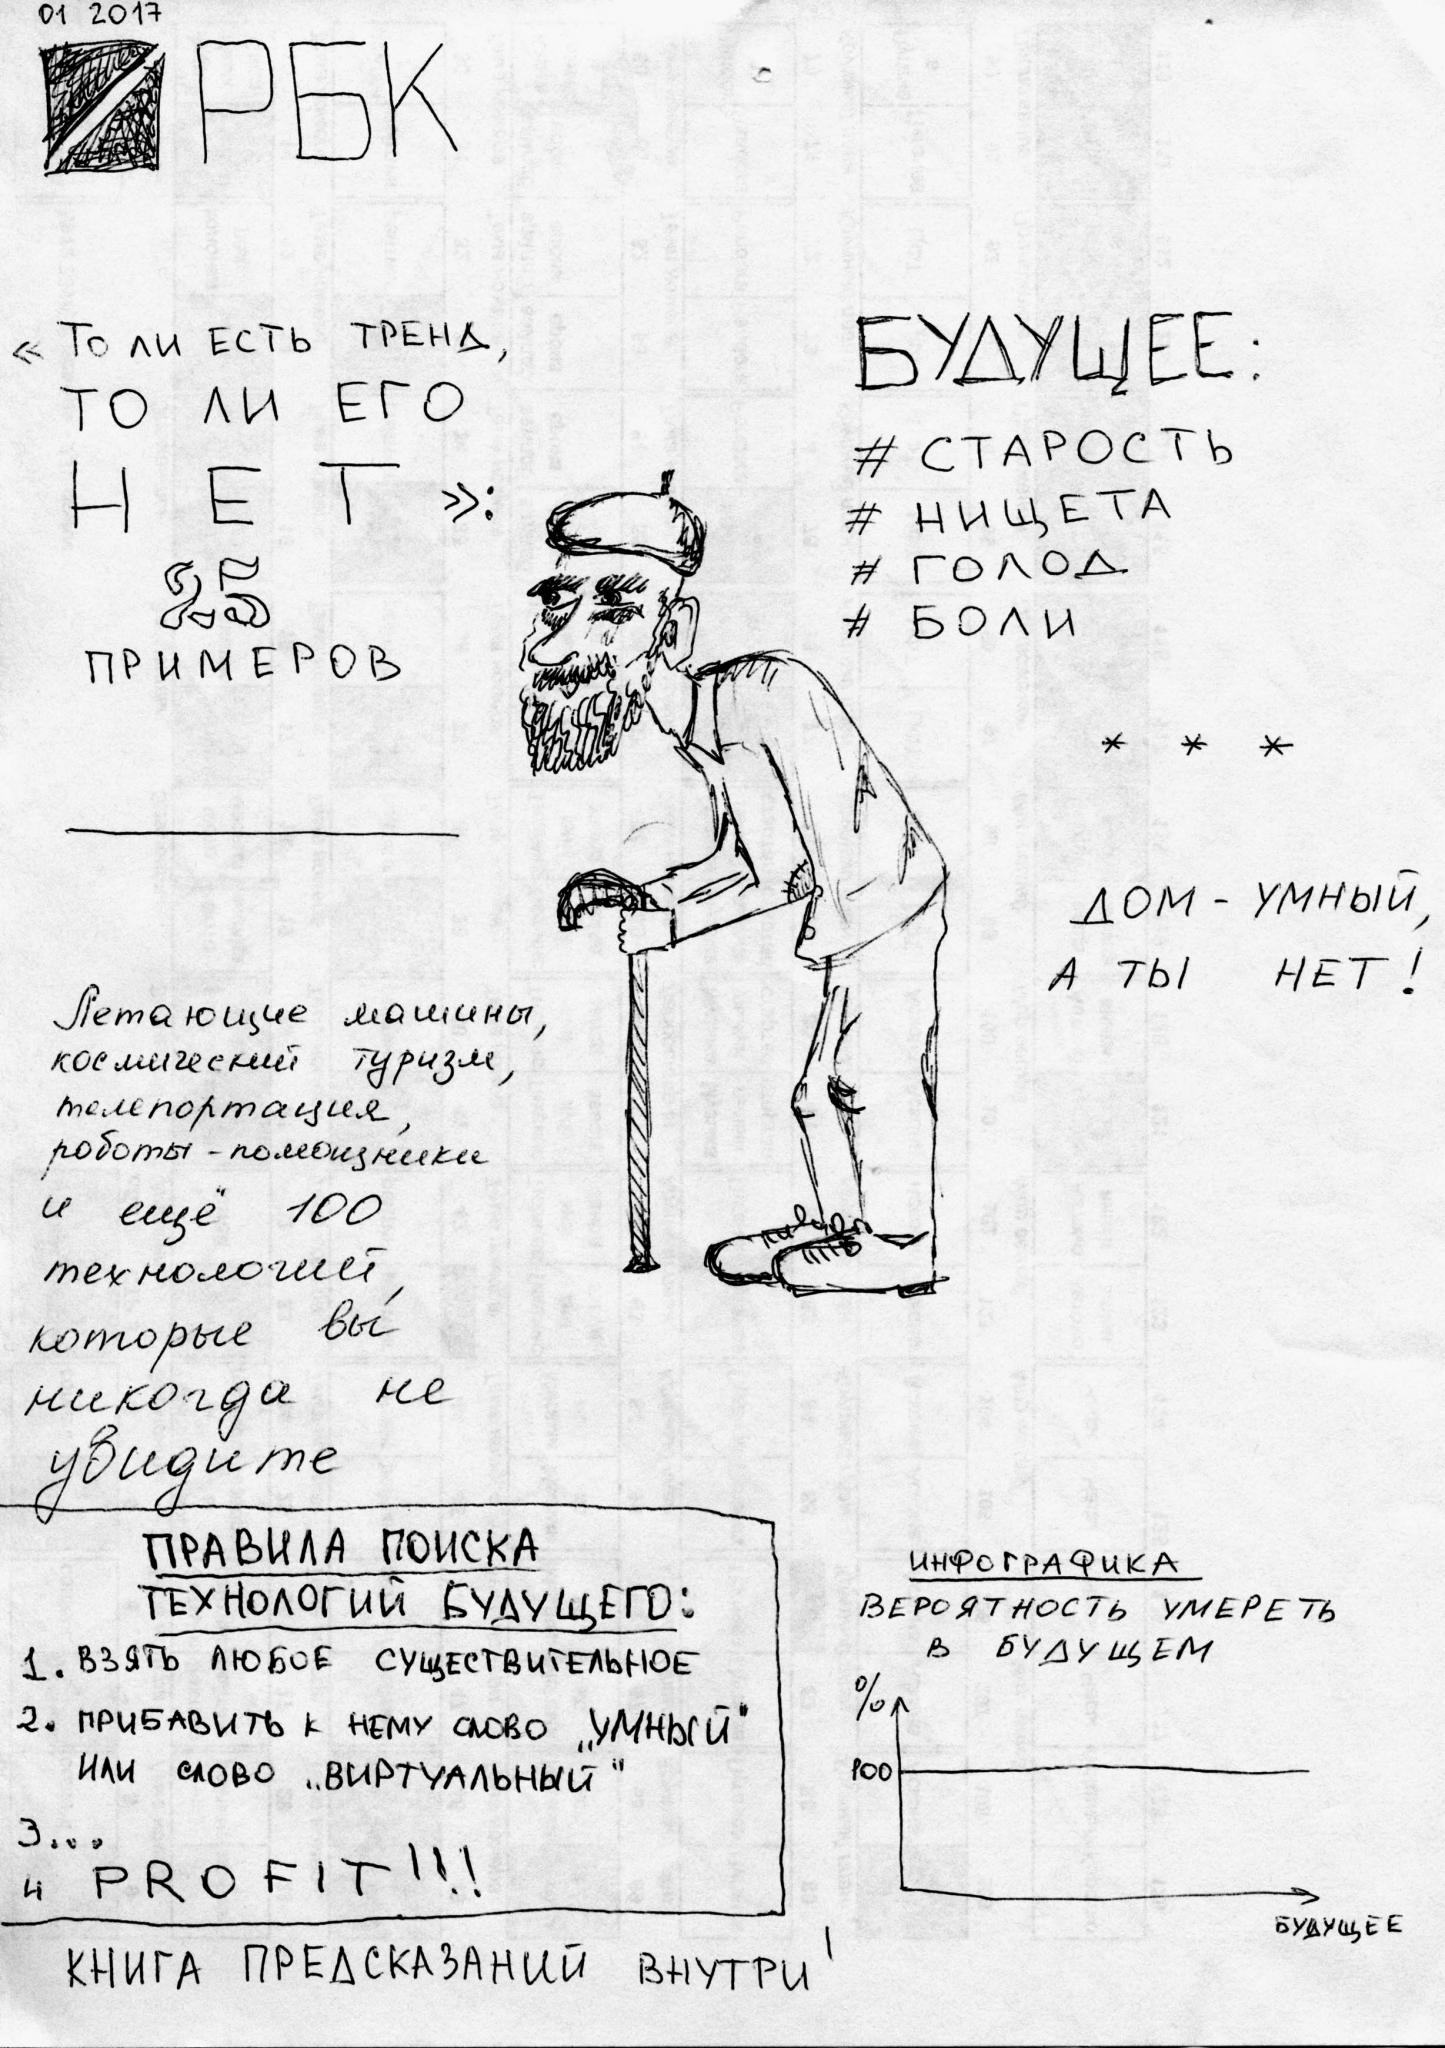 01 2017
РБК
«То ли есть тренд,
ТО ЛИ ЕГО
НЕТ»:
25
ПРИМЕРОВ
БУДУЩЕЕ:
# СТАРОСТЬ
# НИЩЕТА
# ГОЛОД
# БОЛИ
* * *
ДОМ - УМНЫЙ,
А ТЫ НЕТ!
Летающие машины,
космический туризм,
телепортация,
роботы-помощники
и ещё 100
технологий,
которые вы
никогда не
увидите
ПРАВИЛА ПОИСКА
ТЕХНОЛОГИЙ БУДУЩЕГО:
1. ВЗЯТЬ ЛЮБОЕ СУЩЕСТВИТЕЛЬНОЕ
2. ПРИБАВИТЬ К НЕМУ СЛОВО „УМНЫЙ"
ИЛИ СЛОВО „ВИРТУАЛЬНЫЙ"
3...
4 PROFIT!!!
КНИГА ПРЕДСКАЗАНИЙ ВНУТРИ!
ИНФОГРАФИКА
ВЕРОЯТНОСТЬ УМЕРЕТЬ
В БУДУЩЕМ
%
100
БУДУЩЕЕ